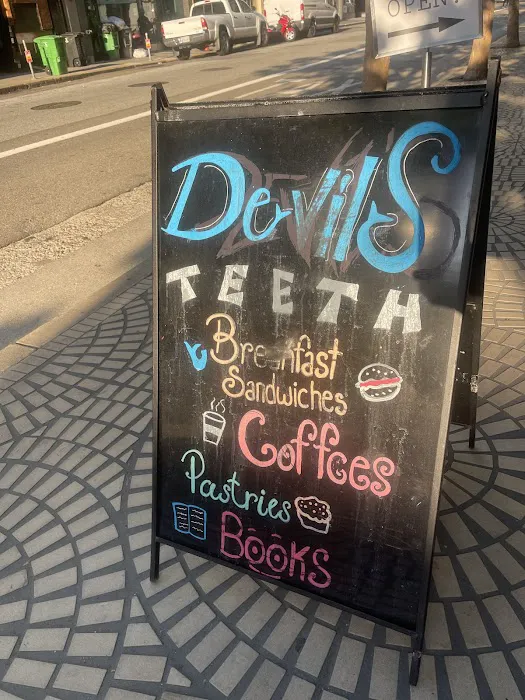 OPEN!
Devil's
TEETH
Breakfast
Sandwiches
Coffees
Pastries
Books